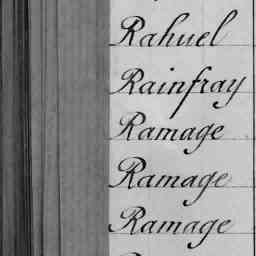 Rahuel
Rainfray
Ramage
Ramage
Ramage